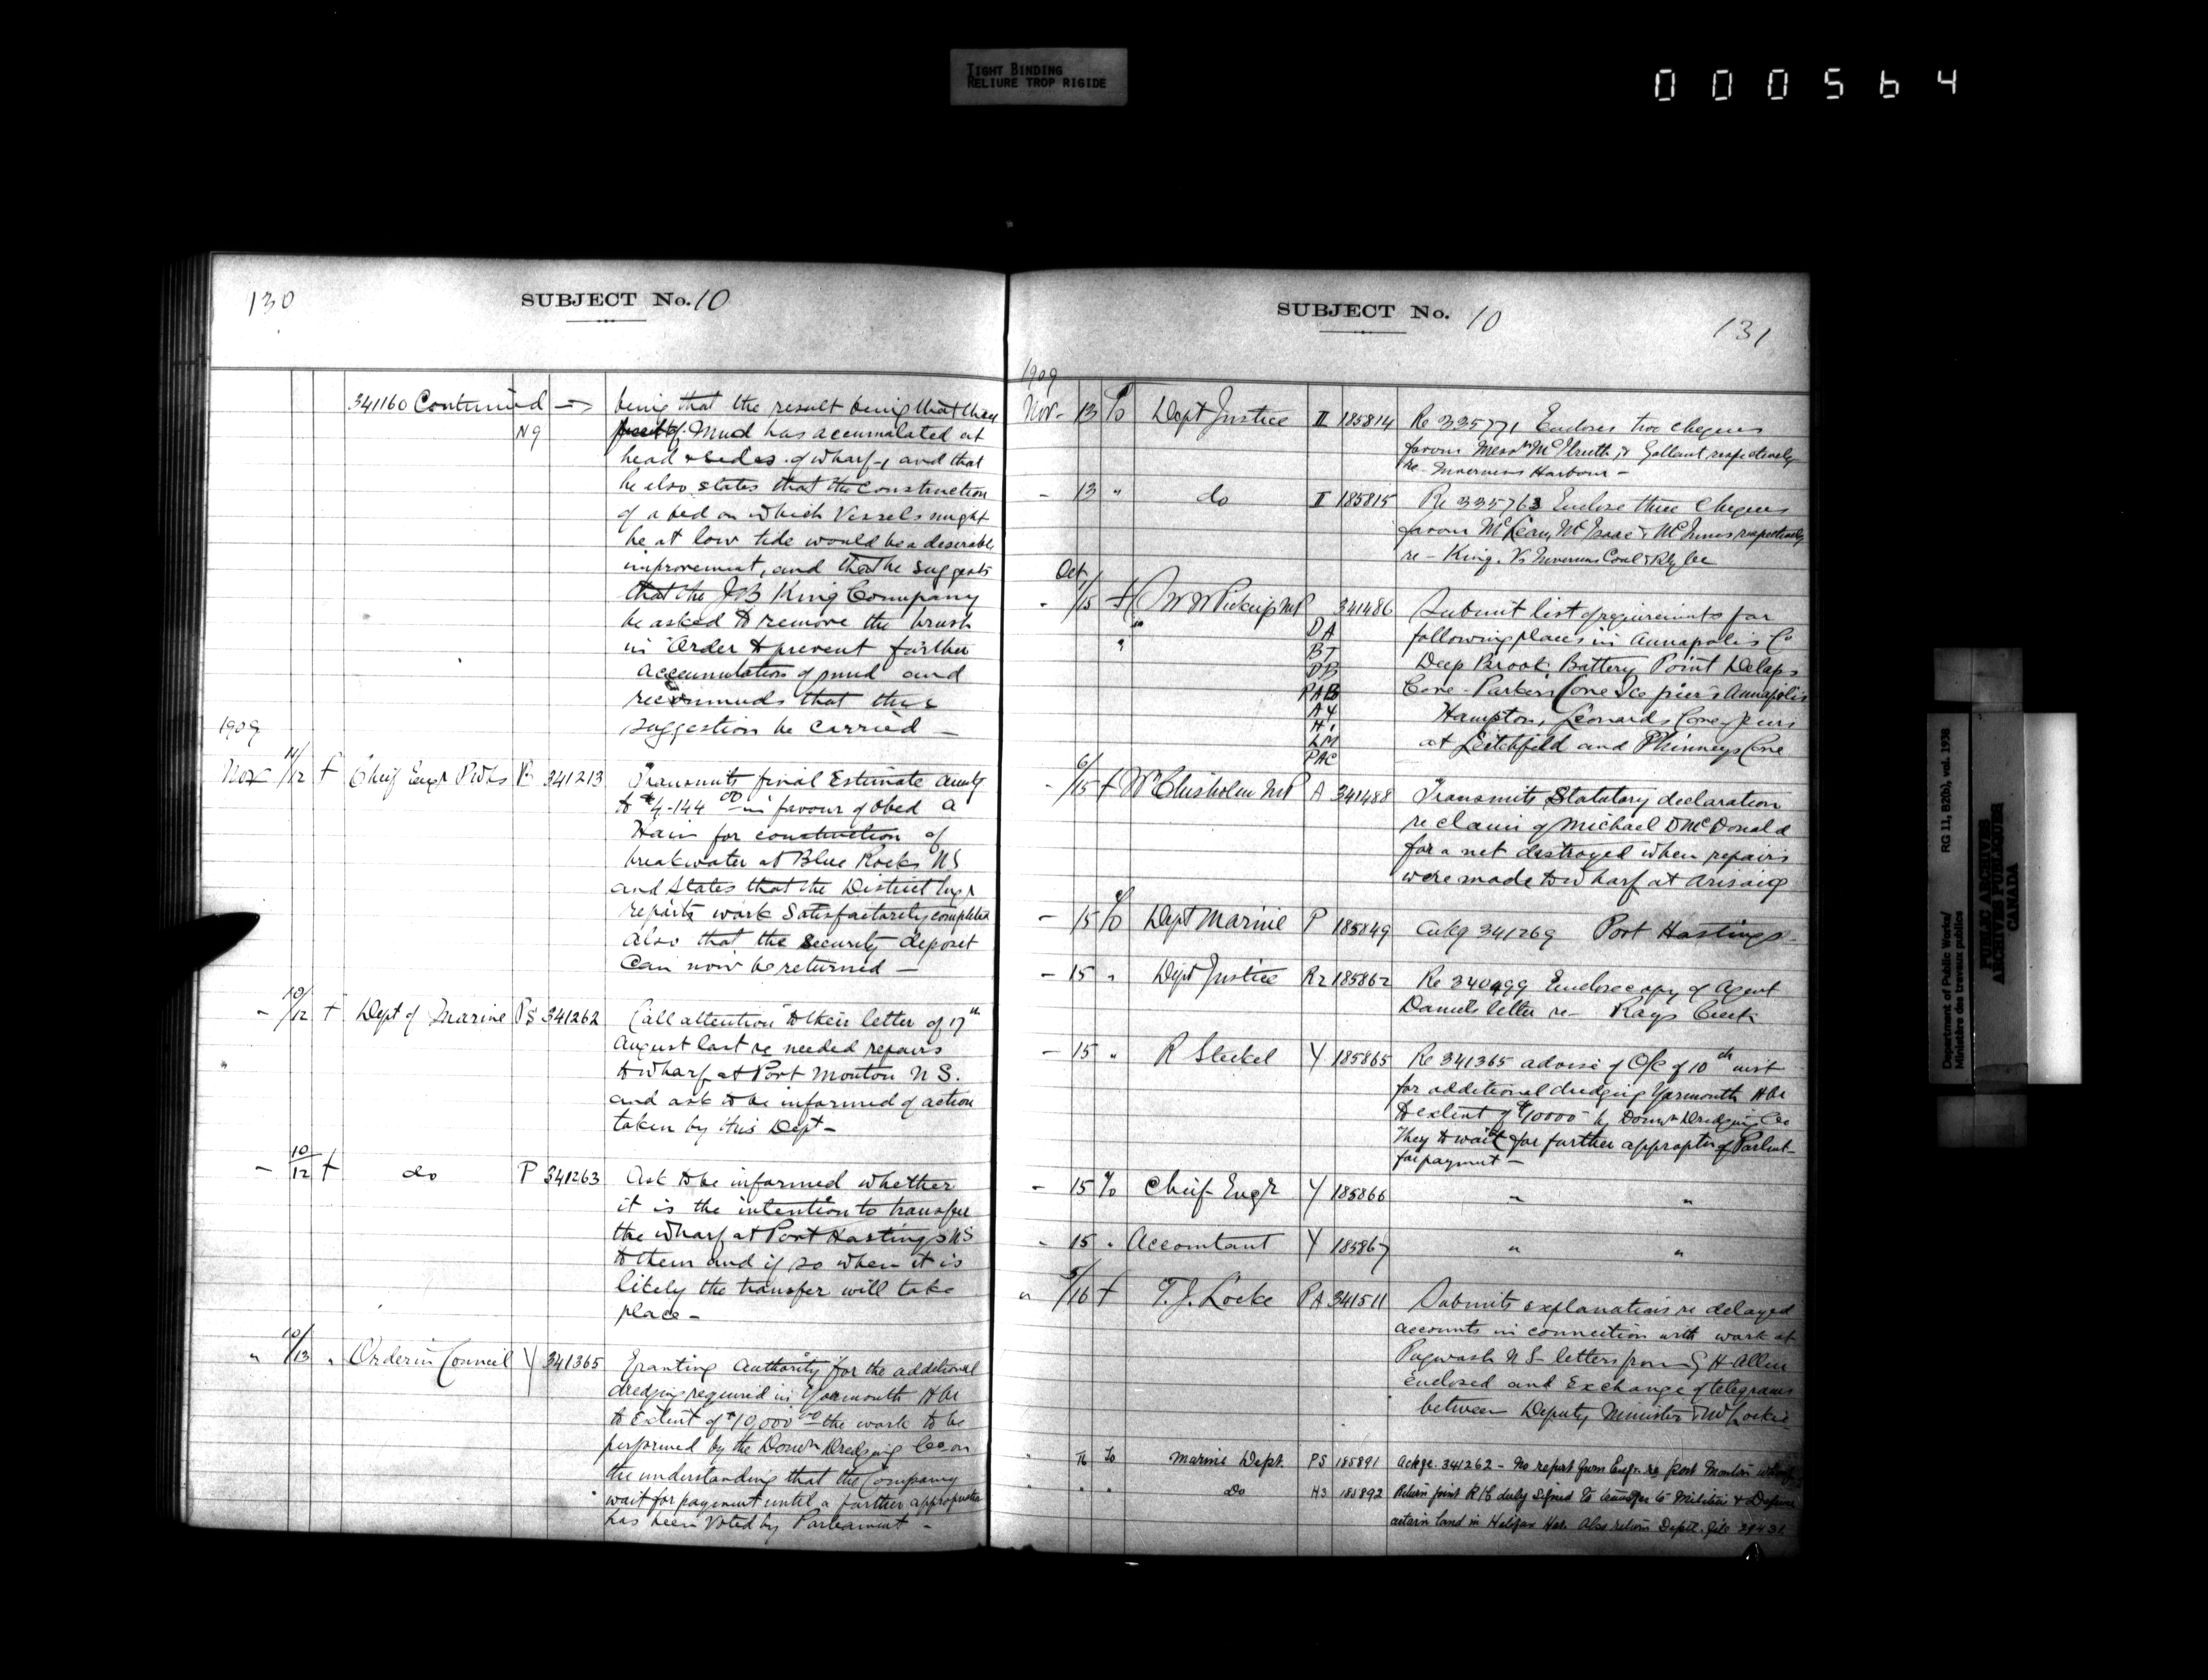 TIGHT BINDING
RELIURE TROP RIGIDE
000564
130 SUBJECT No. 10
341160 Continued → being that the result being that
N9 of mud has accumulated at
head & sides of wharf, and that
he also states that the construction
of a bed on which Vessels might
be at low tide would be a desirable
improvement, and that he suggests
that the J B King Company
be asked to remove the brush
in order to prevent further
accumulation of mud and
recommends that this
suggestion be carried —
1909
Nov 11/12 f Chief Engr P Wks B 341213 Transmits final Estimate amtg
to $4,144 00 in favour of Obed A
Ham for construction of
breakwater at Blue Rocks NS
and states that the District Engr
reports work Satisfactorily completed
also that the security deposit
Can now be returned —
- 10/12 f Dept of Marine PS 341262 Call attention to their letter of 17th
August last re needed repairs
to wharf at Port Mouton N S.
and ask to be informed of action
taken by this Dept —
- 10/12 f do P 341263 Ask to be informed whether
it is the intention to transfer
the wharf at Port Hastings NS
to them and if so when it is
likely the transfer will take
place —
" 10/13 " Order in Council Y 341365 Granting authority for the additional
dredging required in Yarmouth Hbr
to Extent of $10,000 00 the work to be
performed by the Domn Dredging Co on
the understanding that the Company
wait for payment until a further appropriation
has been voted by Parliament —
SUBJECT No. 10 131
1909
Nov- 13 To Dept Justice II 185814 Re 335771 Encloses two cheques
favour Messrs & Gallant respectively
re Inverness Harbour —
- 13 " do I 185815 Re 335763 Enclose three Cheques
favour McLean, McIsaac & McInnes respectively
re — King. Vs Inverness Coal & Rly Co
Oct
- /15 f W W Pickup MP 341486 Submit list of requirements for
" DA following places in Annapolis Co
BT Deep Brook Battery Point Delaps
DB Cove - Parkers Cove Ice piers Annapolis
PAB Hampton, Leonards Cove piers
A4 at Litchfield and Phinneys Cove
H1
LM
PAC
- 6/15 f Wm Chisholm MP A 341488 Transmits Statutory declaration
re claim of Michael D McDonald
for a net destroyed when repairs
were made to wharf at Arisaig
- 15 To Dept Marine P 185849 Ackg 341269 Port Hastings -
- 15 " Dept Justice R2 185862 Re 340499 Enclose copy of Agent
Daniels letter re — Rays Creek
- 15 " R Steckel Y 185865 Re 341365 advise of O/C of 10th inst
for additional dredging Yarmouth Hbr
to extent of $10000 by Domn Dredging Co
They to wait for further approptn of Parlmt
for payment —
- 15 To Chief Engr Y 185866 " "
- 15 " Accountant Y 185867 " "
" 5/16 f T. J. Locke PA 341511 Submits explanations re delayed
accounts in connection with work at
Pugwash N S letters from G H Allen
Enclosed and Exchange of telegrams
between Deputy Minister & Mr Locke
" 16 To Marine Dept. PS 185891 Ackge. 341262 — No report from Engr. re Port Mouton wharf
" " " Do H3 185892 Return joint R/C duly signed to transfer to Militia & Defence
certain land in Halifax Har. Also return Deptl. file 29431
Department of Public Works/
Ministère des travaux publics
RG 11, B2(b), vol. 1938
PUBLIC ARCHIVES
ARCHIVES PUBLIQUES
CANADA